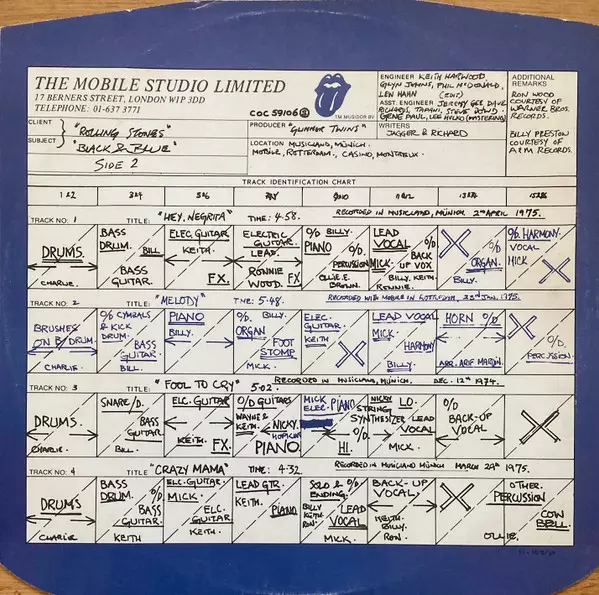 THE MOBILE STUDIO LIMITED
17 BERNERS STREET, LONDON W1P 3DD
TELEPHONE: 01-637 3771
COC 59106
TM MUSIDOR BV
ENGINEER KEITH HARWOOD,
GLYN JOHNS, PHIL McDONALD,
LEW HAHN
ASST. ENGINEER JEREMY GEE, DAVE
RICHARDS, TAPANI, STEVE DOWD
GENE PAUL, LEE HULKO (MASTERING)
ADDITIONAL
REMARKS
RON WOOD
COURTESY OF
WARNER BROS.
RECORDS.
BILLY PRESTON
COURTESY OF
A&M RECORDS.
CLIENT "ROLLING STONES"
SUBJECT "BLACK & BLUE"
SIDE 2
PRODUCER "GLIMMER TWINS"
WRITERS
JAGGER & RICHARD
LOCATION MUSICLAND, MÜNICH.
MOBILE, ROTTERDAM, CASINO, MONTREUX.
TRACK IDENTIFICATION CHART
1&2 3&4 5&6 7&8 9&10 11&12 13&14 15&16
TRACK NO: 1 TITLE: "HEY, NEGRITA" TIME: 4·58. RECORDED IN MUSICLAND, MÜNICH 2nd APRIL 1975.
DRUMS.
CHARLIE.
BASS
DRUM.
BILL
BASS
GUITAR.
ELEC. GUITAR
KEITH.
FX.
ELECTRIC
GUITAR.
LEAD.
RONNIE
WOOD.
FX
O/D BILLY.
PIANO
O/D
PERCUSSION
OLLIE. E.
BROWN.
LEAD
VOCAL
MICK.
O/D
BACK
UP VOX
BILLY, KEITH
RONNIE.
O/D
ORGAN.
BILLY.
O/D HARMONY.
VOCAL
MICK
TRACK NO: 2 TITLE: "MELODY" TIME: 5·48. RECORDED WITH MOBILE IN ROTTERDAM, 23rd JAN. 1975.
BRUSHES
ON B/DRUM
CHARLIE.
O/D CYMBALS
& KICK
DRUM.
BASS
GUITAR.
BILL.
PIANO
BILLY.
O/D. BILLY.
ORGAN
FOOT
STOMP
MICK.
ELEC.
GUITAR.
KEITH
LEAD VOCAL
MICK.
HARMONY
BILLY.
HORN O/D
ARR. ARIF MARDIN.
O/D.
PERCUSSION.
TRACK NO: 3 TITLE: "FOOL TO CRY" 5·02. RECORDED IN MUSICLAND, MÜNICH, DEC. 12th 1974.
DRUMS.
CHARLIE.
SNARE/D.
BASS
GUITAR.
BILL
ELC. GUITAR
KEITH.
FX.
O/D GUITARS
WAYNE &
KEITH.
NICKY
HOPKINS
PIANO
MICK
ELEC. PIANO
O/D
HI.
NICKY LO.
STRING
SYNTHESIZER
LEAD
VOCAL
MICK.
O/D
BACK-UP
VOCAL
TRACK NO: 4 TITLE "CRAZY MAMA" TIME: 4·32. RECORDED IN MUSICLAND MÜNICH MARCH 29th 1975.
DRUMS
CHARLIE
BASS
DRUM.
O/D
BASS
GUITAR.
KEITH
ELC. GUITAR
MICK.
ELC.
GUITAR
KEITH
LEAD GTR.
KEITH.
PIANO
SOLO &
ENDING.
BILLY
KEITH
RON.
LEAD
VOCAL
MICK.
BACK-UP
VOCAL
KEITH.
BILLY.
RON
OLLIE.
OTHER.
PERCUSSION
COW
BELL.